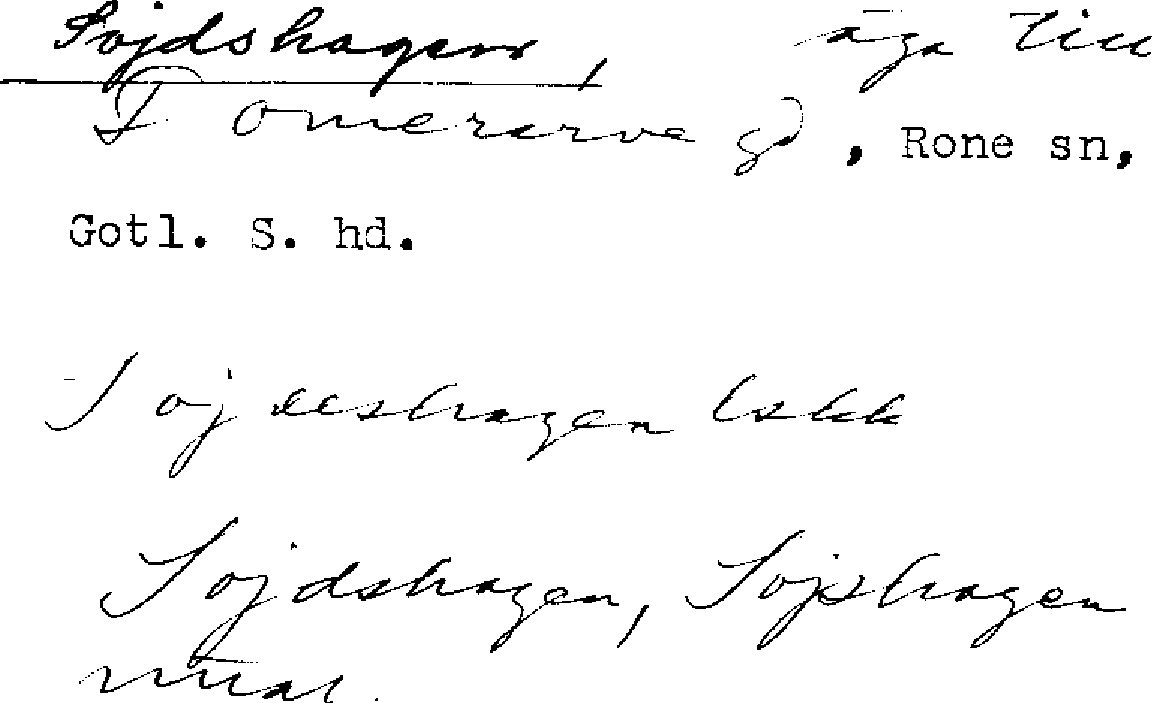 Sojdshagen, äga till
Tomerarve gd, Rone sn,
Gotl. S. hd.
Sojdeshagen lskk
Sojdshagen, Sojshagen